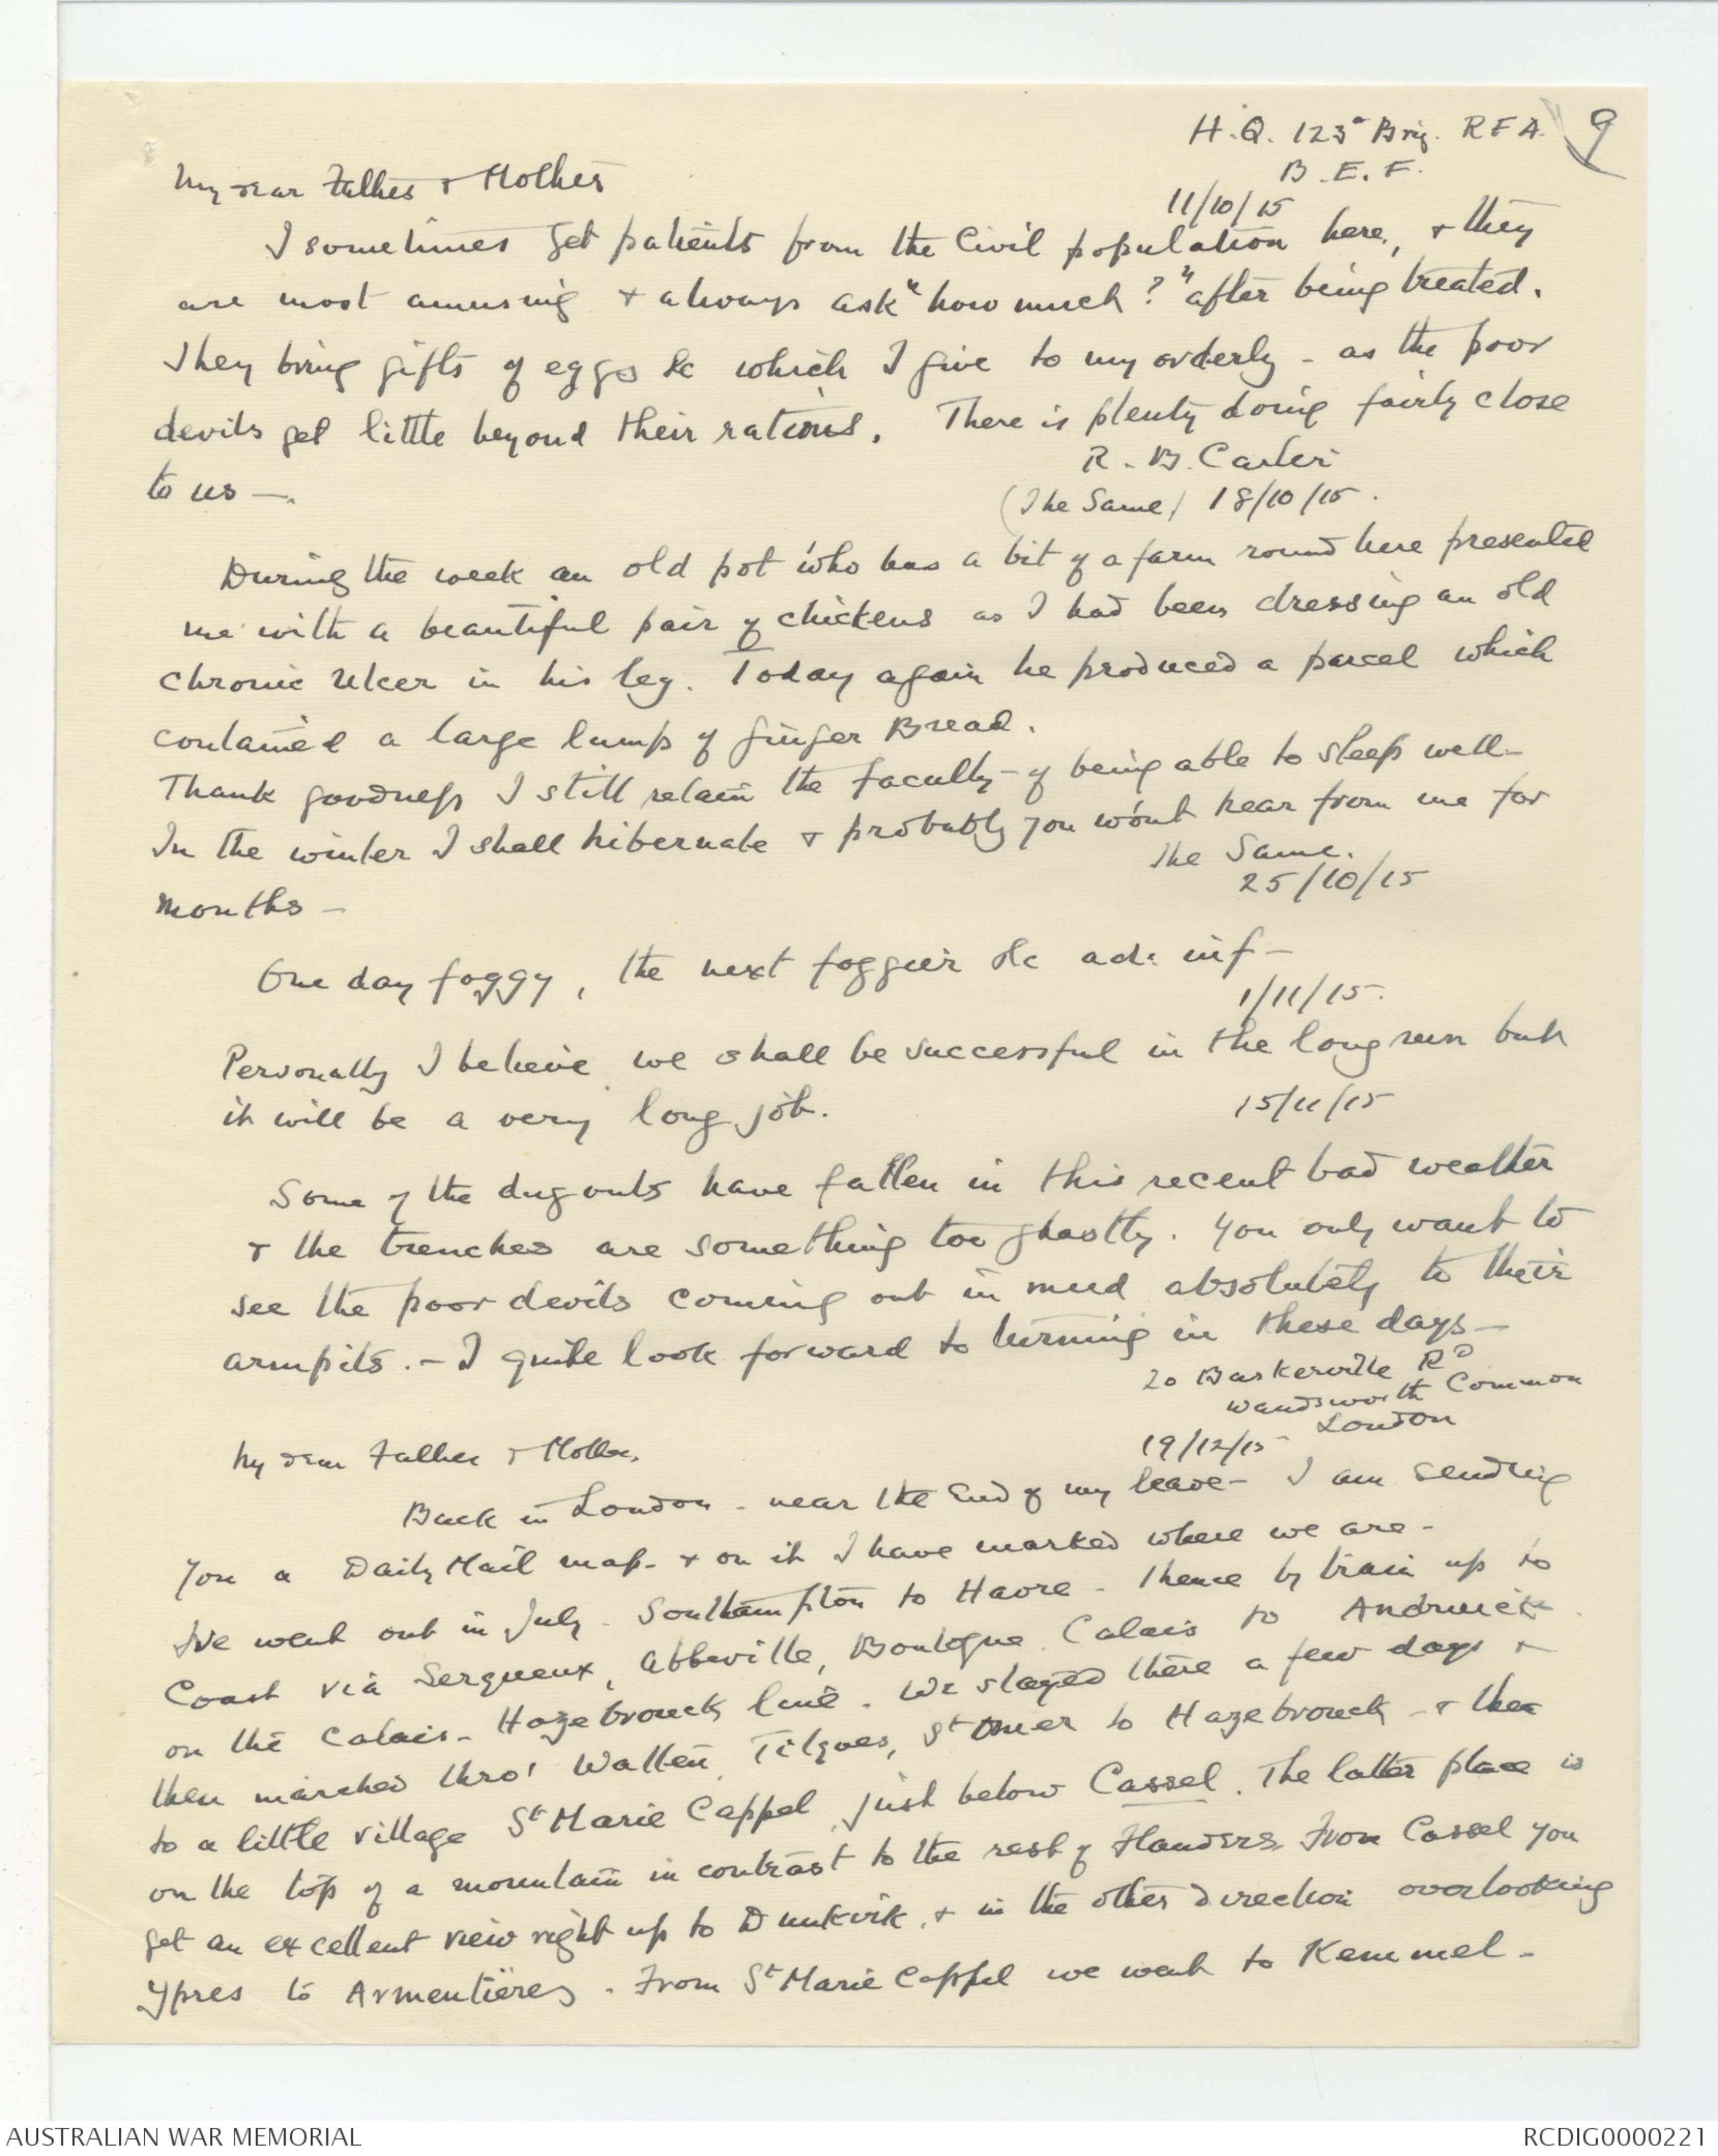 H.Q. 123rd Brig. R F A. 9
B.E.F.
11/10/15
My dear Father & Mother
I sometimes get patients from the Civil population here, & they
are most amusing & always ask "how much?" after being treated.
They bring gifts of eggs &c which I give to my orderly - as the poor
devils get little beyond their rations. There is plenty doing fairly close
to us —.
R. B. Carter
(The Same) 18/10/15.
During the week an old pot who has a bit of a farm round here presented
me with a beautiful pair of chickens as I had been dressing an old
chronic ulcer in his leg. Today again he produced a parcel which
contained a large lump of ginger Bread.
Thank goodness I still retain the faculty - of being able to sleep well -
In the winter I shall hibernate & probably you won't hear from me for
months -
The Same.
25/10/15
One day foggy, the next foggier &c ad. inf -
1/11/15.
Personally I believe we shall be successful in the long run but
it will be a very long job.
15/11/15
Some of the dug outs have fallen in this recent bad weather
& the trenches are something too ghastly. You only want to
see the poor devils coming out in mud absolutely to their
armpits. - I quite look forward to turning in these days -
20 Baskerville Rd
Wandsworth Common
London
19/12/15
My dear Father & Mother,
Back in London - near the End of my leave - I am sending
you a Daily Mail map - & on it I have marked where we are -
We went out in July - Southampton to Havre - thence by train up to
Coast via Serqueux, Abbeville, Boulogne, Calais to Andruick
on the Calais - Hazebrouck line. We stayed there a few days &
then marched thro' Watten, Tilques, St Omer to Hazebrouck - & then
to a little village St Marie Cappel, just below Cassel. The latter place is
on the top of a mountain in contrast to the rest of Flanders. From Cassel you
get an excellent view right up to Dunkirk, & in the other direction overlooking
Ypres to Armentières. From St Marie Cappel we went to Kemmel -
AUSTRALIAN WAR MEMORIAL
RCDIG0000221